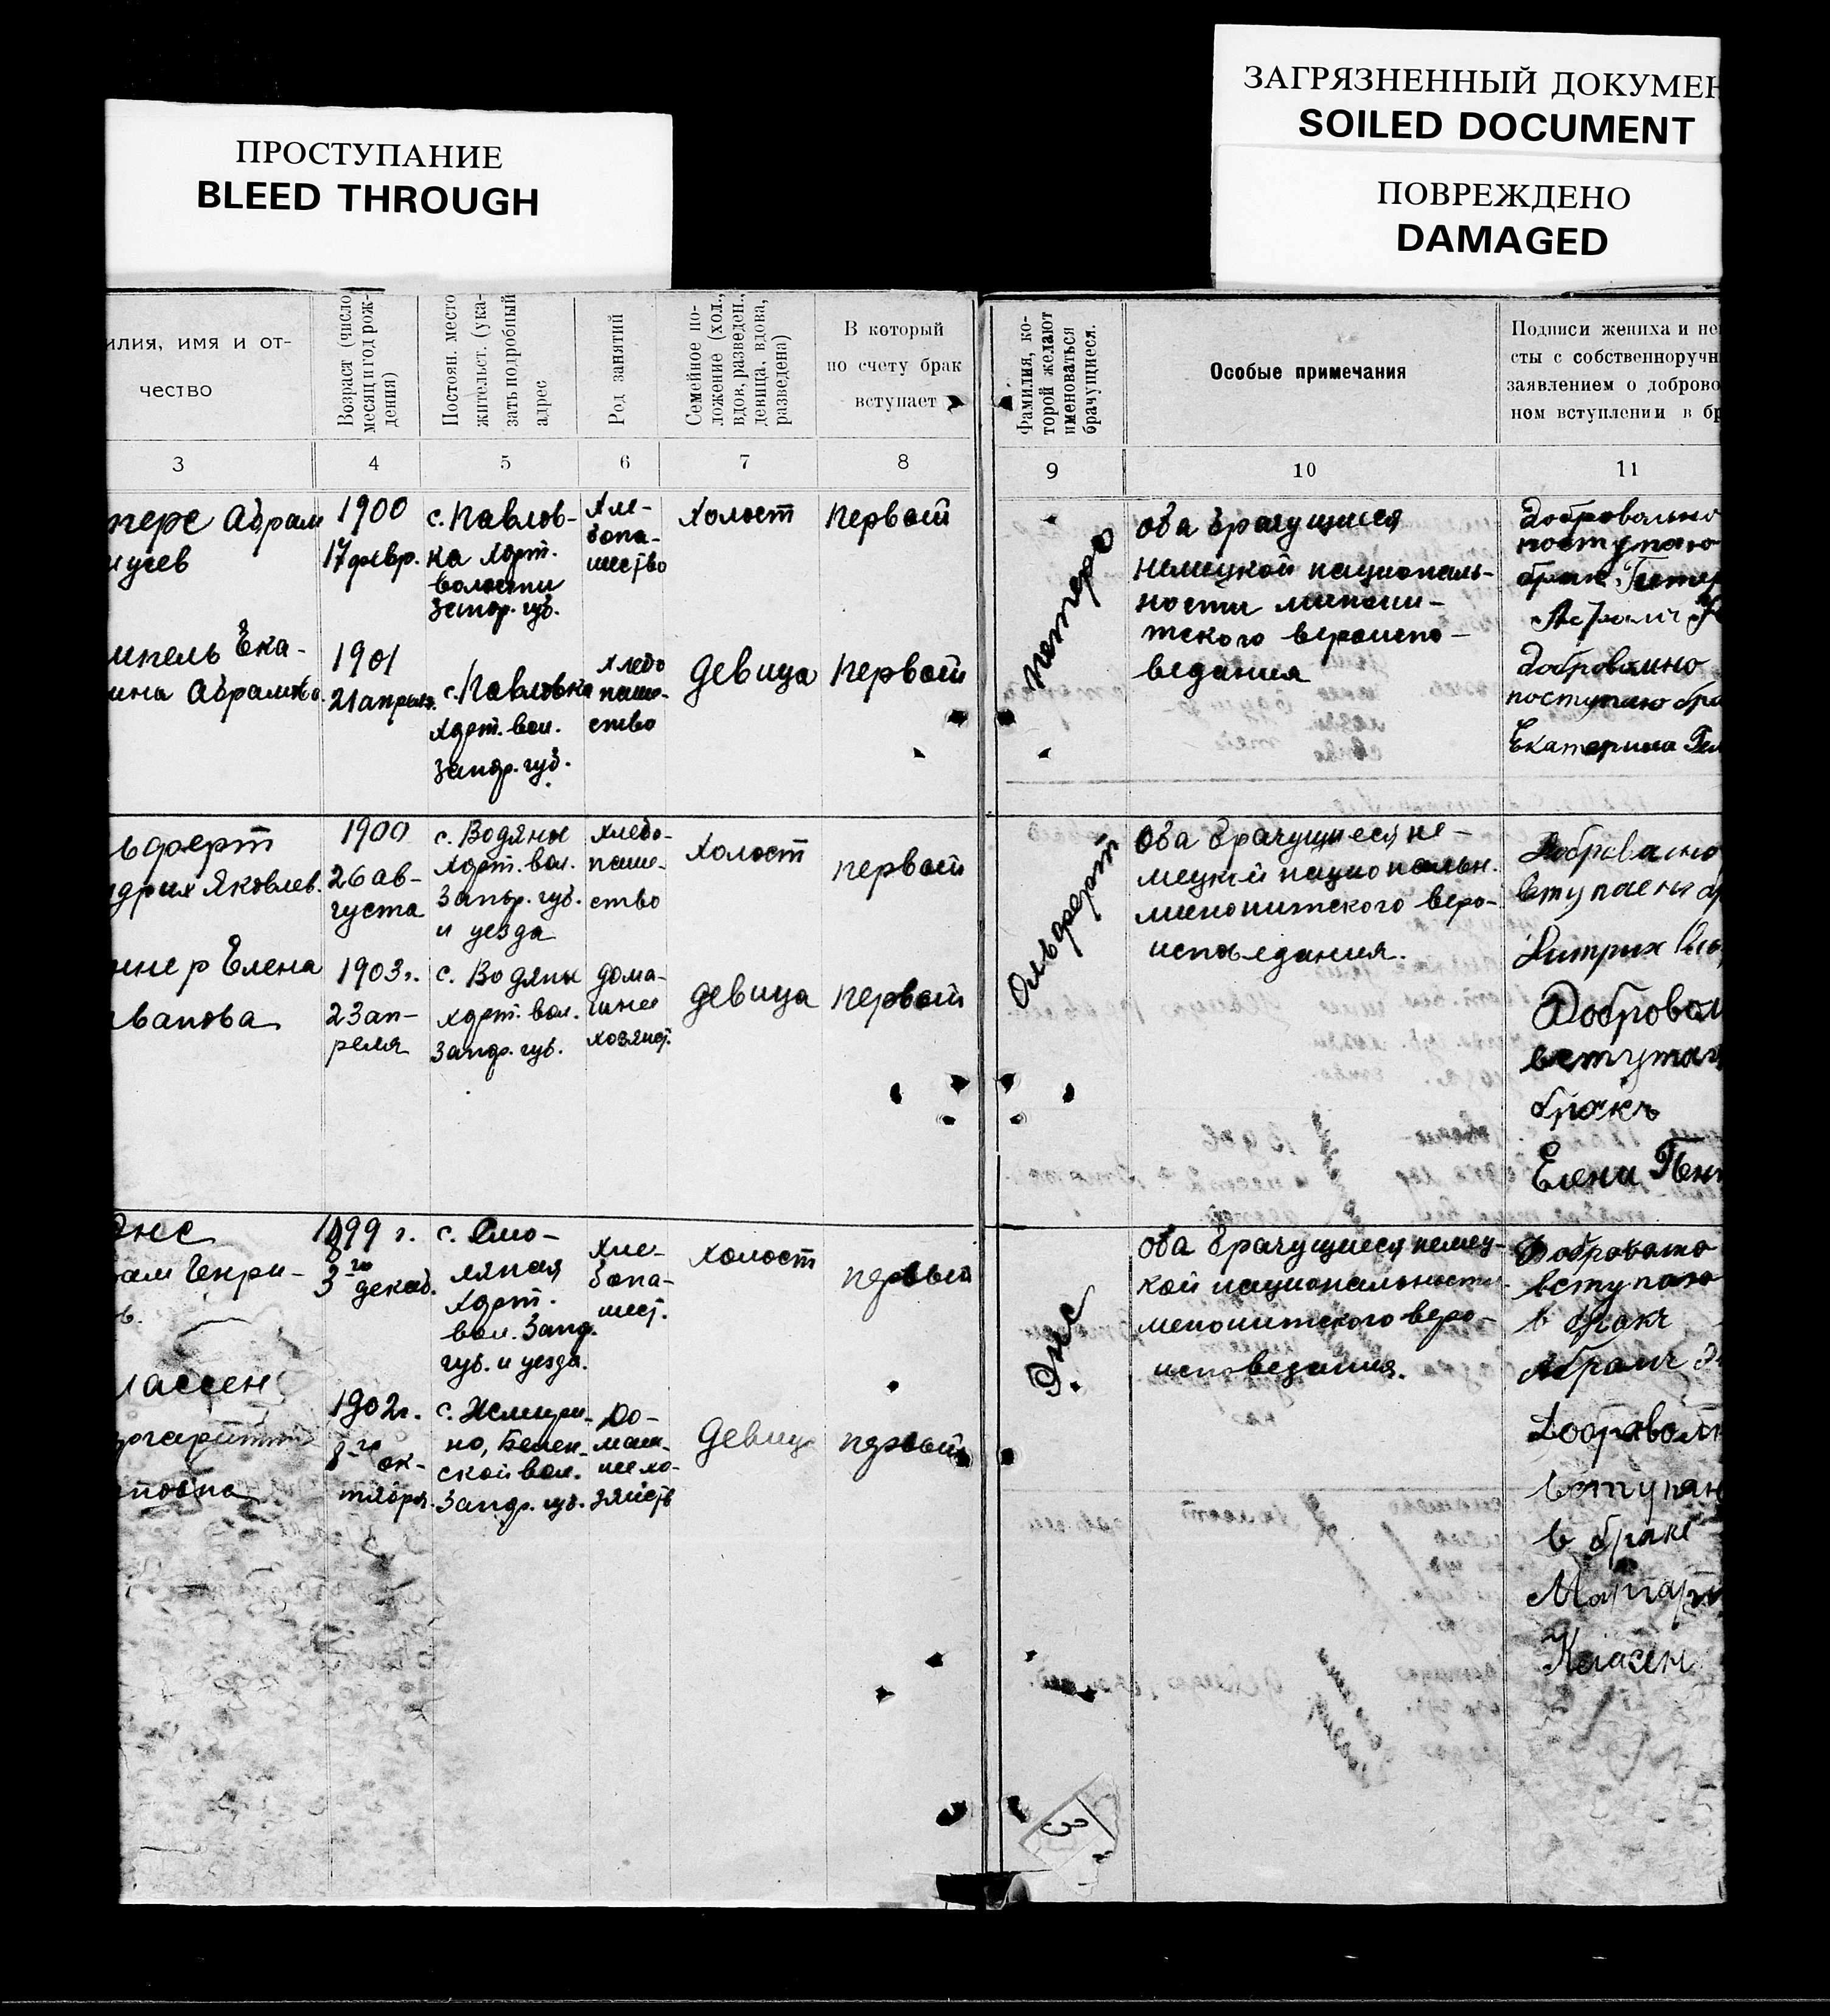 ПРОСТУПАНИЕ
BLEED THROUGH
ЗАГРЯЗНЕННЫЙ ДОКУМЕН
SOILED DOCUMENT
ПОВРЕЖДЕНО
DAMAGED
илия, имя и от-
чество
Возраст (число
месяц и год рож-
дения)
Постоян. место
жительст. (ука-
зать подробный
адрес
Род занятий
Семейное по-
ложение (хол.,
вдов, разведен.,
девица, вдова,
разведена)
В который
по счету брак
вступает
Фамилия, ко-
торой желают
именоваться
брачущиеся.
Особые примечания
Подписи жениха и не
сты с собственноручн
заявлением о доброво
ном вступлении в бр
3
4
5
6
7
8
9
10
11
Абрам
1900
17 февр.
с. Павлов-
ка Хорт.
волости
Запор. губ.
Хле-
бопа-
шество
Холост
первый
Петерс
оба брачущиеся
немецкой националь-
ности менони-
тского вероиспо-
ведания
Добровольно
поступаю
брак Петер
Абрамъ
мпель Ека-
ина Абрамова
1901
21 апреля.
с. Павловка
Хорт. вол.
Запор. губ.
хлебо
паше-
ство
девица
первый
Добровольно
поступаю бра
Екатерина
ьферт
дрих Яковлев.
1900
26 ав-
густа
с. Водяны
Хорт. вол.
Запор. губ.
и уезда
хлебо-
паше-
ство
Холост
первый
Ольферт
Оба брачущиеся не-
мецкой национальн.
менонитского веро-
исповедания.
Добровольно
вступаю
Дитрих
ннер Елена
вановa
1903 г.
23 ап-
реля
с. Водяны
Хорт. вол.
Запор. губ.
дома-
шнее
хозяйст.
девица
первый
Добровол
вступаю
бракъ
Елена Пен
Энс
ам Генри-
в.
1899 г.
3го декаб.
с. Смо-
ляная
Хорт.
вол. Запор.
губ. и уезда.
Хле-
бопа-
шест.
Холост
первый
Энс
оба брачущиеся немец-
кой национальности
менонитского веро-
исповедания.
Добровольно
вступаю
в бракъ
Абрамъ Эн
лассен
ргарита
1902 г.
8го ок-
тября.
ской вол.
Запор. губ.
До-
маш-
нее хо-
зяйств
Девица
первый
Добровольн
вступаю
в браке
Маргари
Класен
3